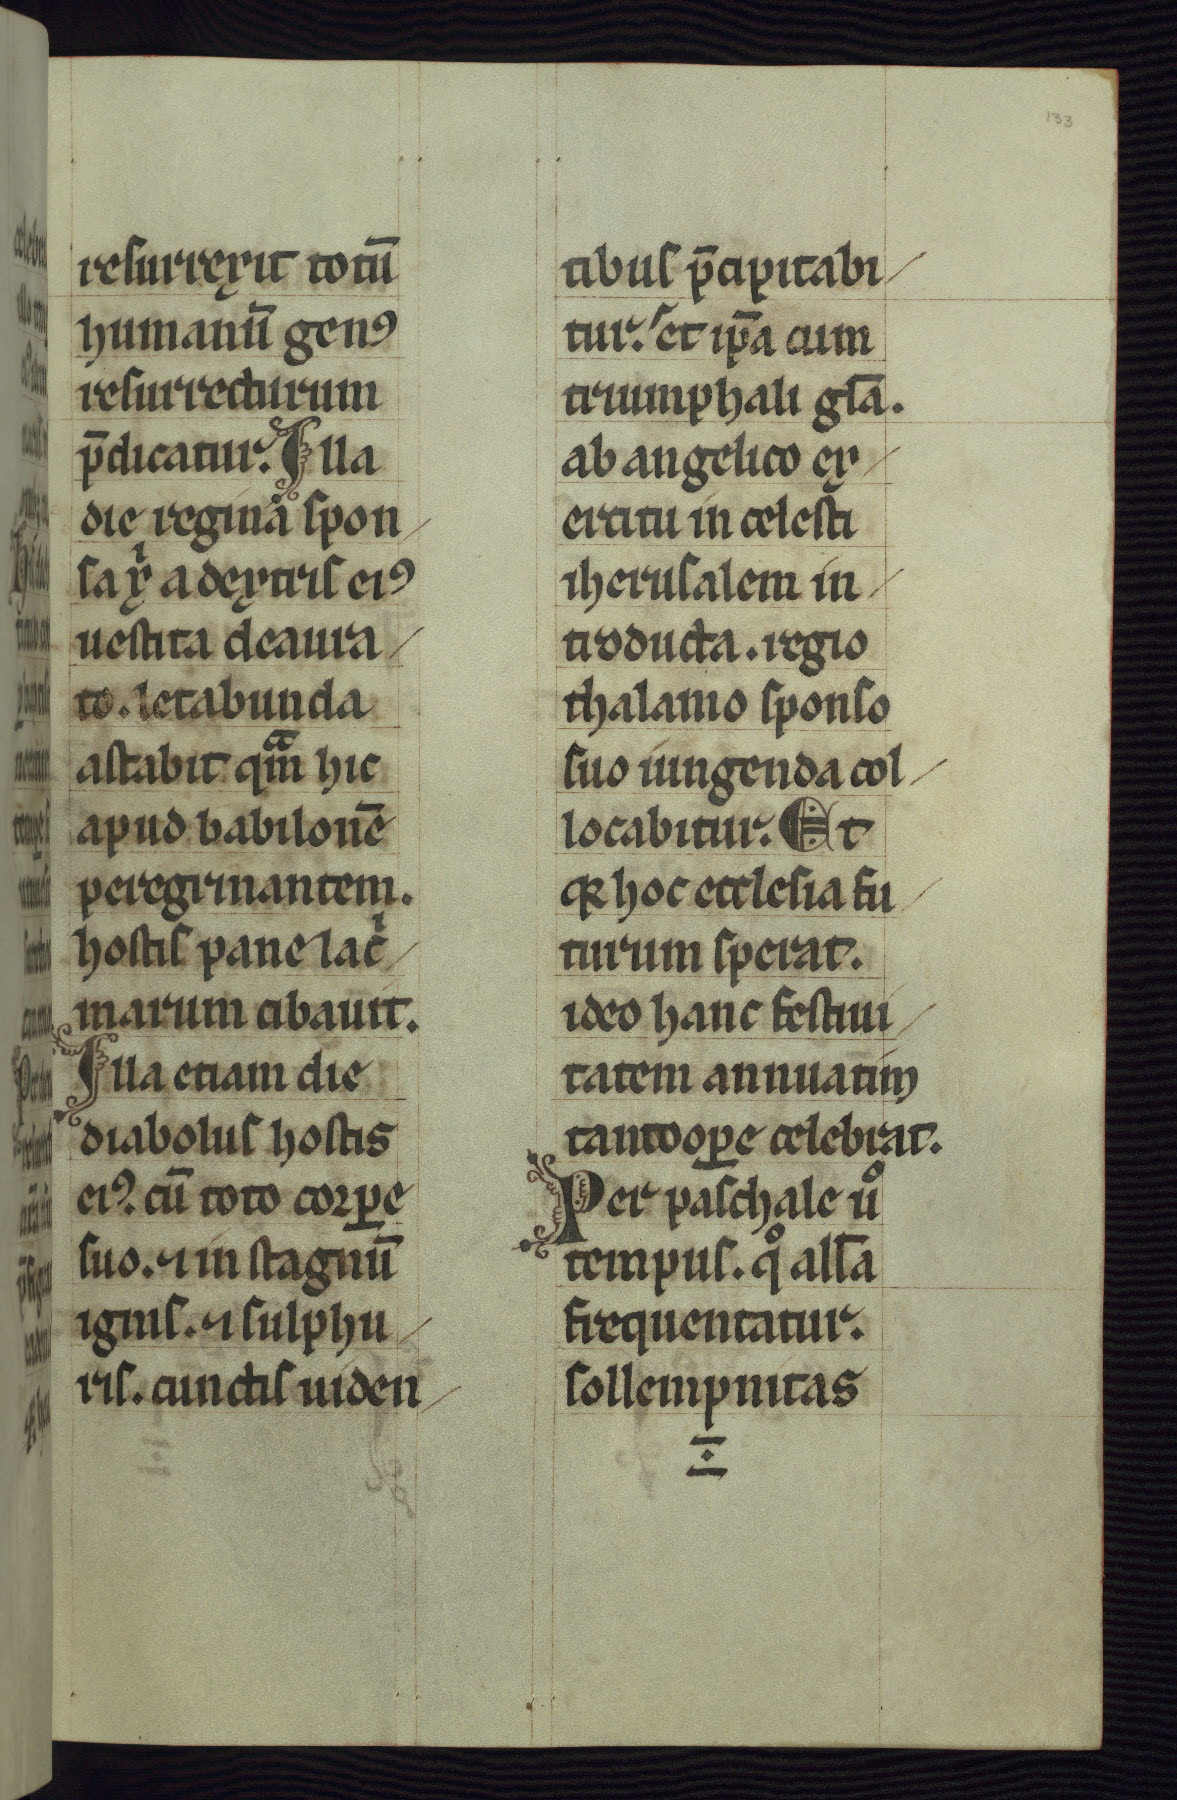 133
resurrexit totū
humanū genꝰ
resurrecturum
p̄dicatur. Illa
die regina spon/
sa xͥ a dextris eiꝰ
uestita deaura/
to. letabunda
astabit qͣm̄ hic
apud babilonē
peregrinantem.
hostis pane lacͥ/
marum cibauit.
Illa etiam die
diabolus hostis
eiꝰ. cū toto corꝑe
suo. ⁊ in stagnū
ignis. ⁊ sulphu/
ris. cunctis uiden/
tibus p̄cipitabi/
tur. et ip̄a cum
triumphali gl̄a.
ab angelico ex/
ercitu in celesti
iherusalem in/
troducta. regio
thalamo sponso
suo iungenda col/
locabitur. Et
qꝛ hoc ecclesia fu/
turum sperat.
ideo hanc festiui/
tatem annuatim
tantooꝑe celebrat.
Per paschale uͦ
tempus. qͦ all̄a
frequentatur.
sollempnitas